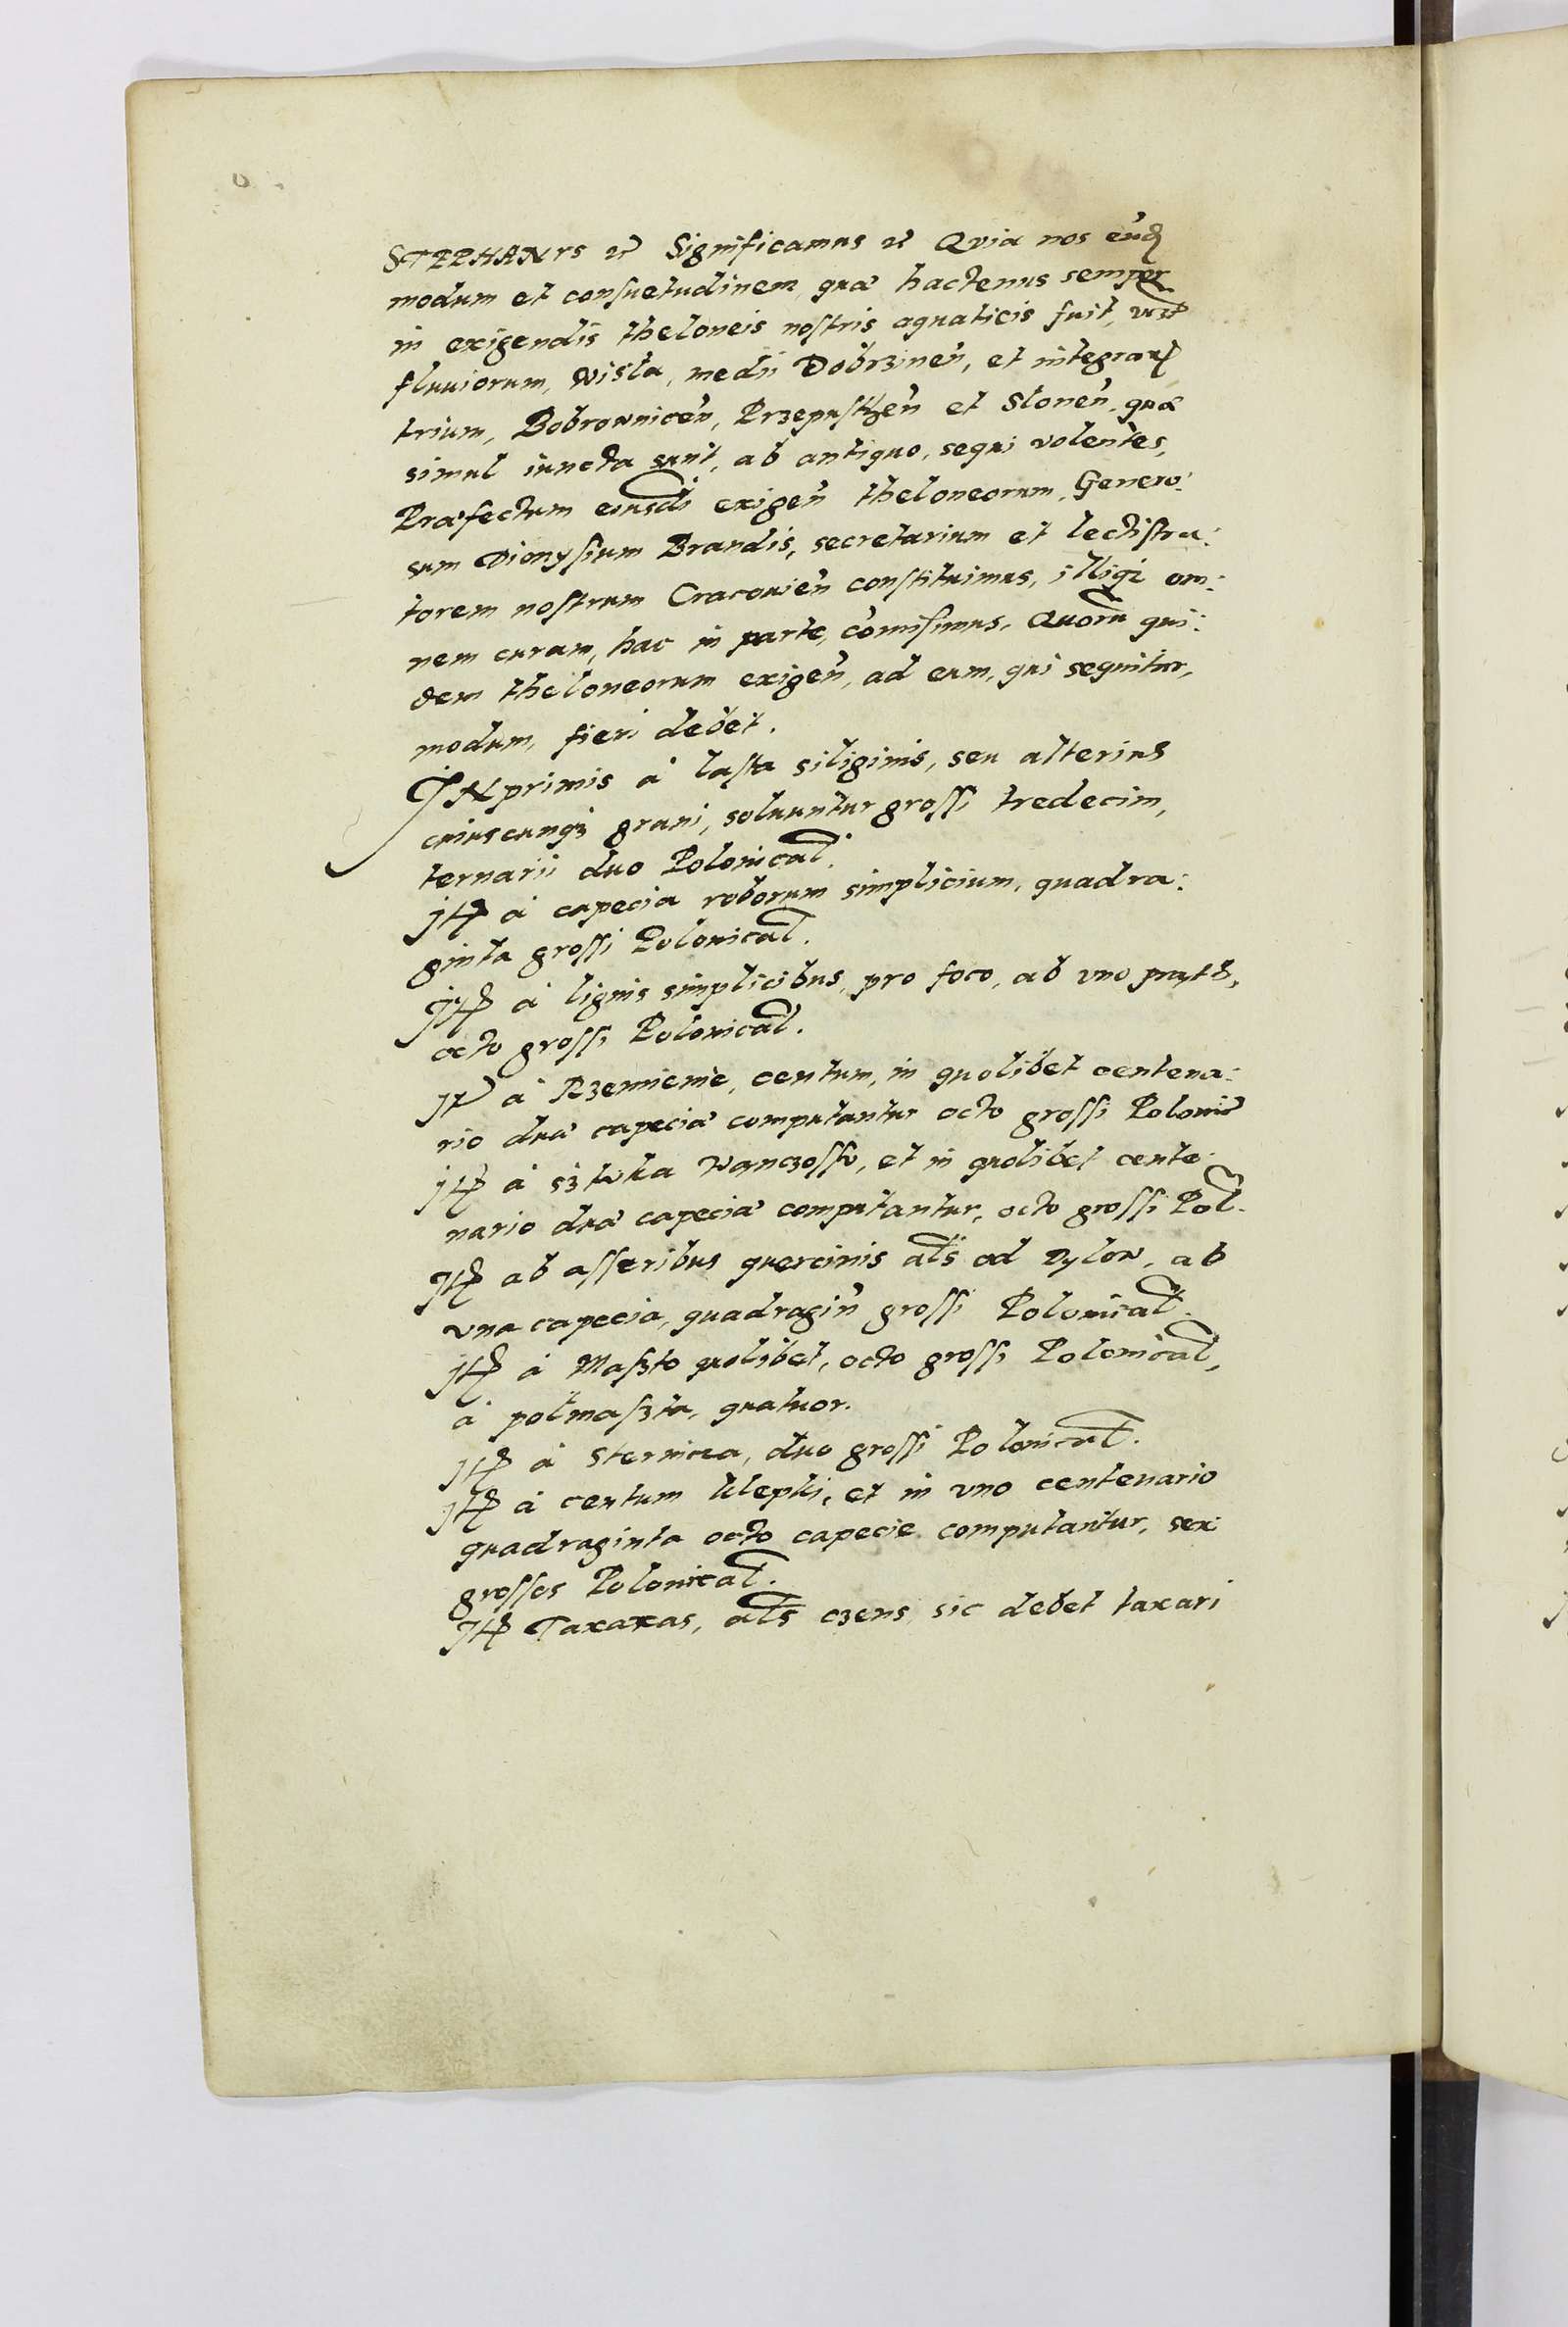 STEPHANVS etc Significamus etc Qvia nos eund
modum et consuetudinem, quæ hactenus semper
in exigendis theloneis nostris aquaticis fuit, vzt
fluuiorum, Wisla, medii Dobrzinen, et integrorum
trium, Bobrownicen, Przepustzen et Slonen, quæ
simul iuncta sunt, ab antiquo, sequi volentes,
Præfectum eiusdi exigen theloneorum, Genero:
sum Dionysium Brandis, secretarium et lectistra:
torem nostrum Cracouien constituimus, illiqz om:
nem curam, hac in parte, comisimus, Quorum qui:
dem theloneorum exigen, ad eum, qui sequitur,
modum, fieri debet.
INprimis à lasta siliginis, seu alterius
cuiuscunqz grani, soluuntur grossi tredecim,
ternarii duo Polonical.
Itp à capecia roborum simplicium, quadra:
ginta grossi Polonical.
Itp à lignis simplicibus, pro foco, ab vno
octo grossi Polonical.
It à Rzemienie, centum, in quolibet centena:
rio duæ capeciæ computantur octo grossi Polonic
Itp à sztuka Wanczossu, et in quolibet cente
nario duæ capeciæ computantur, octo grossi Pol.
Itp ab asseribus quercinis als od Dylow, ab
vna capecia, quadragin grossi Polonical.
Itp à Maszto quolibet, octo grossi Polonical,
à polmaszta, quatuor.
Itp à Sternicza, duo grossi Polonical.
Itp à centum klepki, et in vno centenario
quadraginta octo capecie computantur, sex
grossos Polonical.
Itp Taxaxas, als czens, sic debet taxari